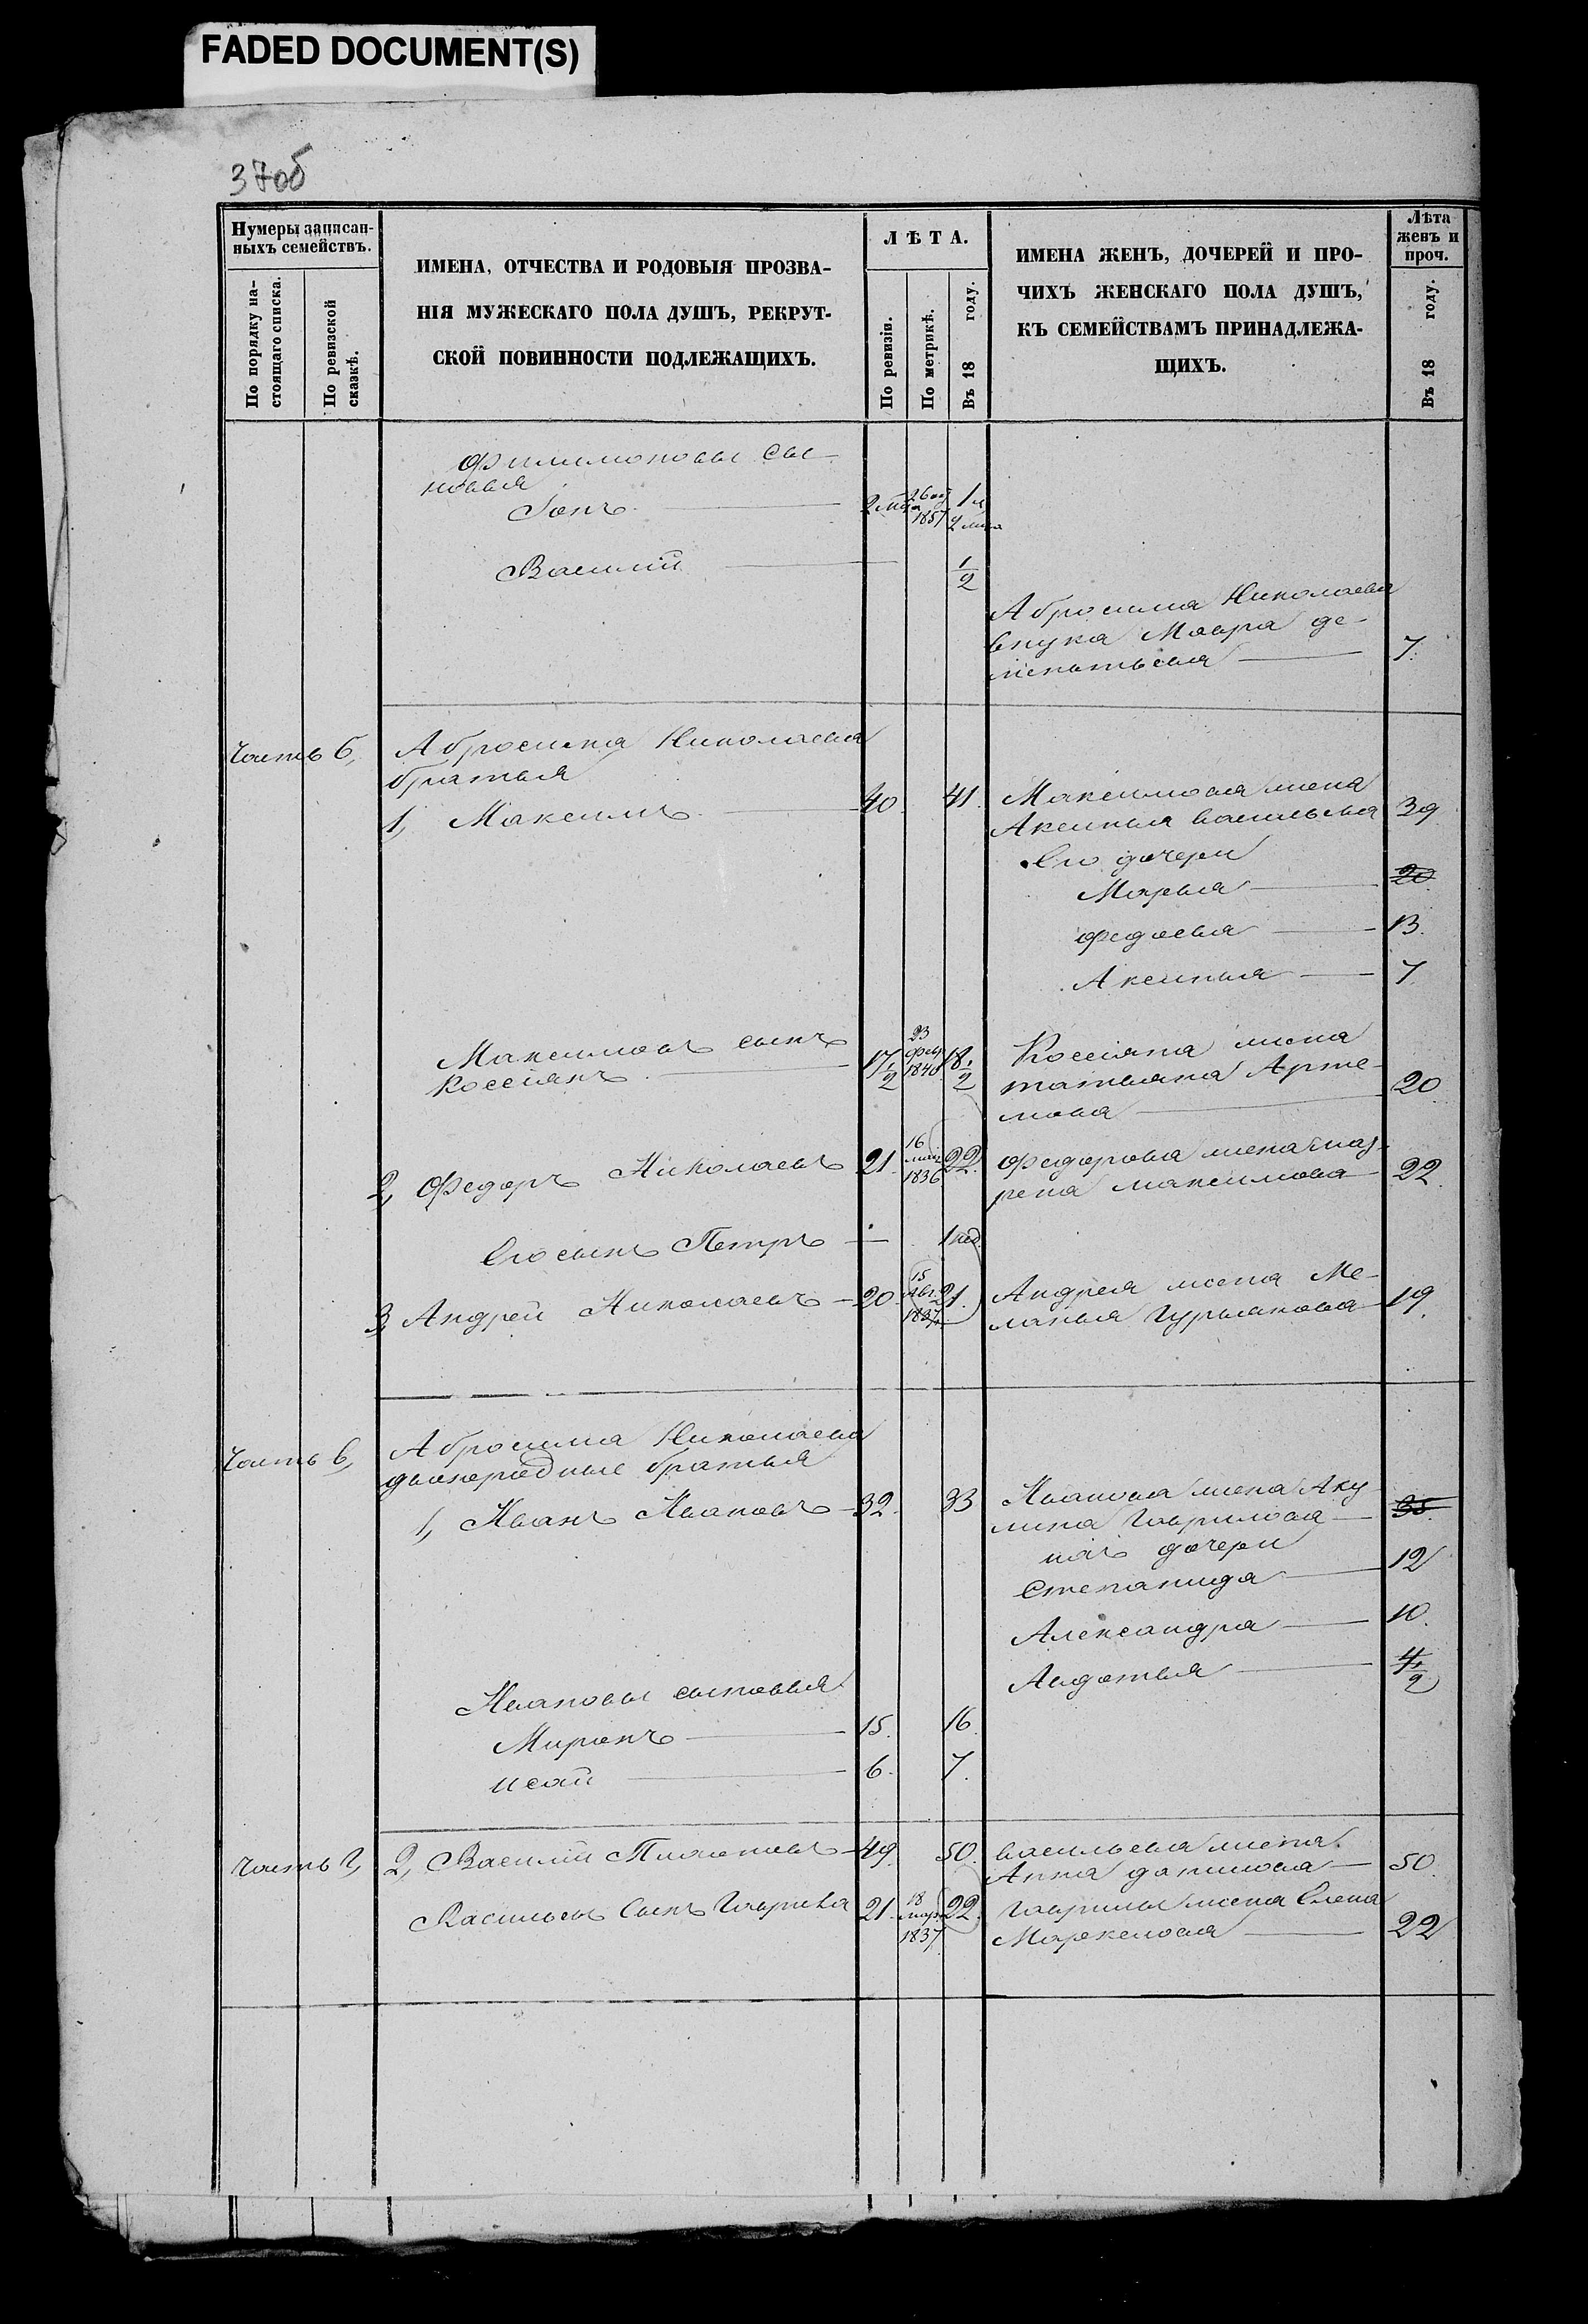 FADED DOCUMENT(S)
37об
Нумеры записан-
ныхъ семействъ.
По порядку на-
стоящаго списка.
По ревизской
сказкѣ.
ИМЕНА, ОТЧЕСТВА И РОДОВЫЯ ПРОЗВА-
НІЯ МУЖЕСКАГО ПОЛА ДУШЪ, РЕКРУТ-
СКОЙ ПОВИННОСТИ ПОДЛЕЖАЩИХЪ.
ЛѢТА.
По ревизіи.
По метрикѣ.
Въ 18 году.
ИМЕНА ЖЕНЪ, ДОЧЕРЕЙ И ПРО-
ЧИХЪ ЖЕНСКАГО ПОЛА ДУШЪ,
КЪ СЕМЕЙСТВАМЪ ПРИНАДЛЕЖА-
ЩИХЪ.
Лѣта
женъ и
проч.
Въ 18 году.
Филимоновы сы-
новья
Іонъ 1857
Василій 1/2
Абросима Николаева
внука Мавра де-
ментьева 7.
Часть б, Абросима Николаева
братья
1, Максимъ 40. 41.
Максимова жена
Аксинья васильева 39
Его дочери
Марья 20
Федосья 13.
Аксинья 7
Максимовъ сынъ
Коссіянъ 17 1/2 23 фев 1840 18 1/2
Коссіяна жена
татьяна Арте-
мова 20
2, Федоръ Николаевъ 21. 16 1836 22.
Федорова жена
рена максимова 22.
Его сынъ Петръ — 1 нед.
3, Андрей Николаевъ 20. 15 1837 21.
Андрея жена Ме-
ланья Гурьянова 19.
Часть в, Абросима Николаева
двоюродные братья
1, Иванъ Ивановъ 32. 33
Иванова жена Аку-
лина Гаврилова 35.
ихъ дочери
Степанида 12
Александра 10.
Авдотья 4 1/2
Ивановы сыновья
Миронъ 15. 16.
исай 6. 7.
Часть г, 2, Василій 49. 50.
васильева жена
Анна данилова 50
Васильевъ Сынъ Гаврила 21. 18 мар. 1837 22.
Гаврилы жена Елена
Маркелова 22